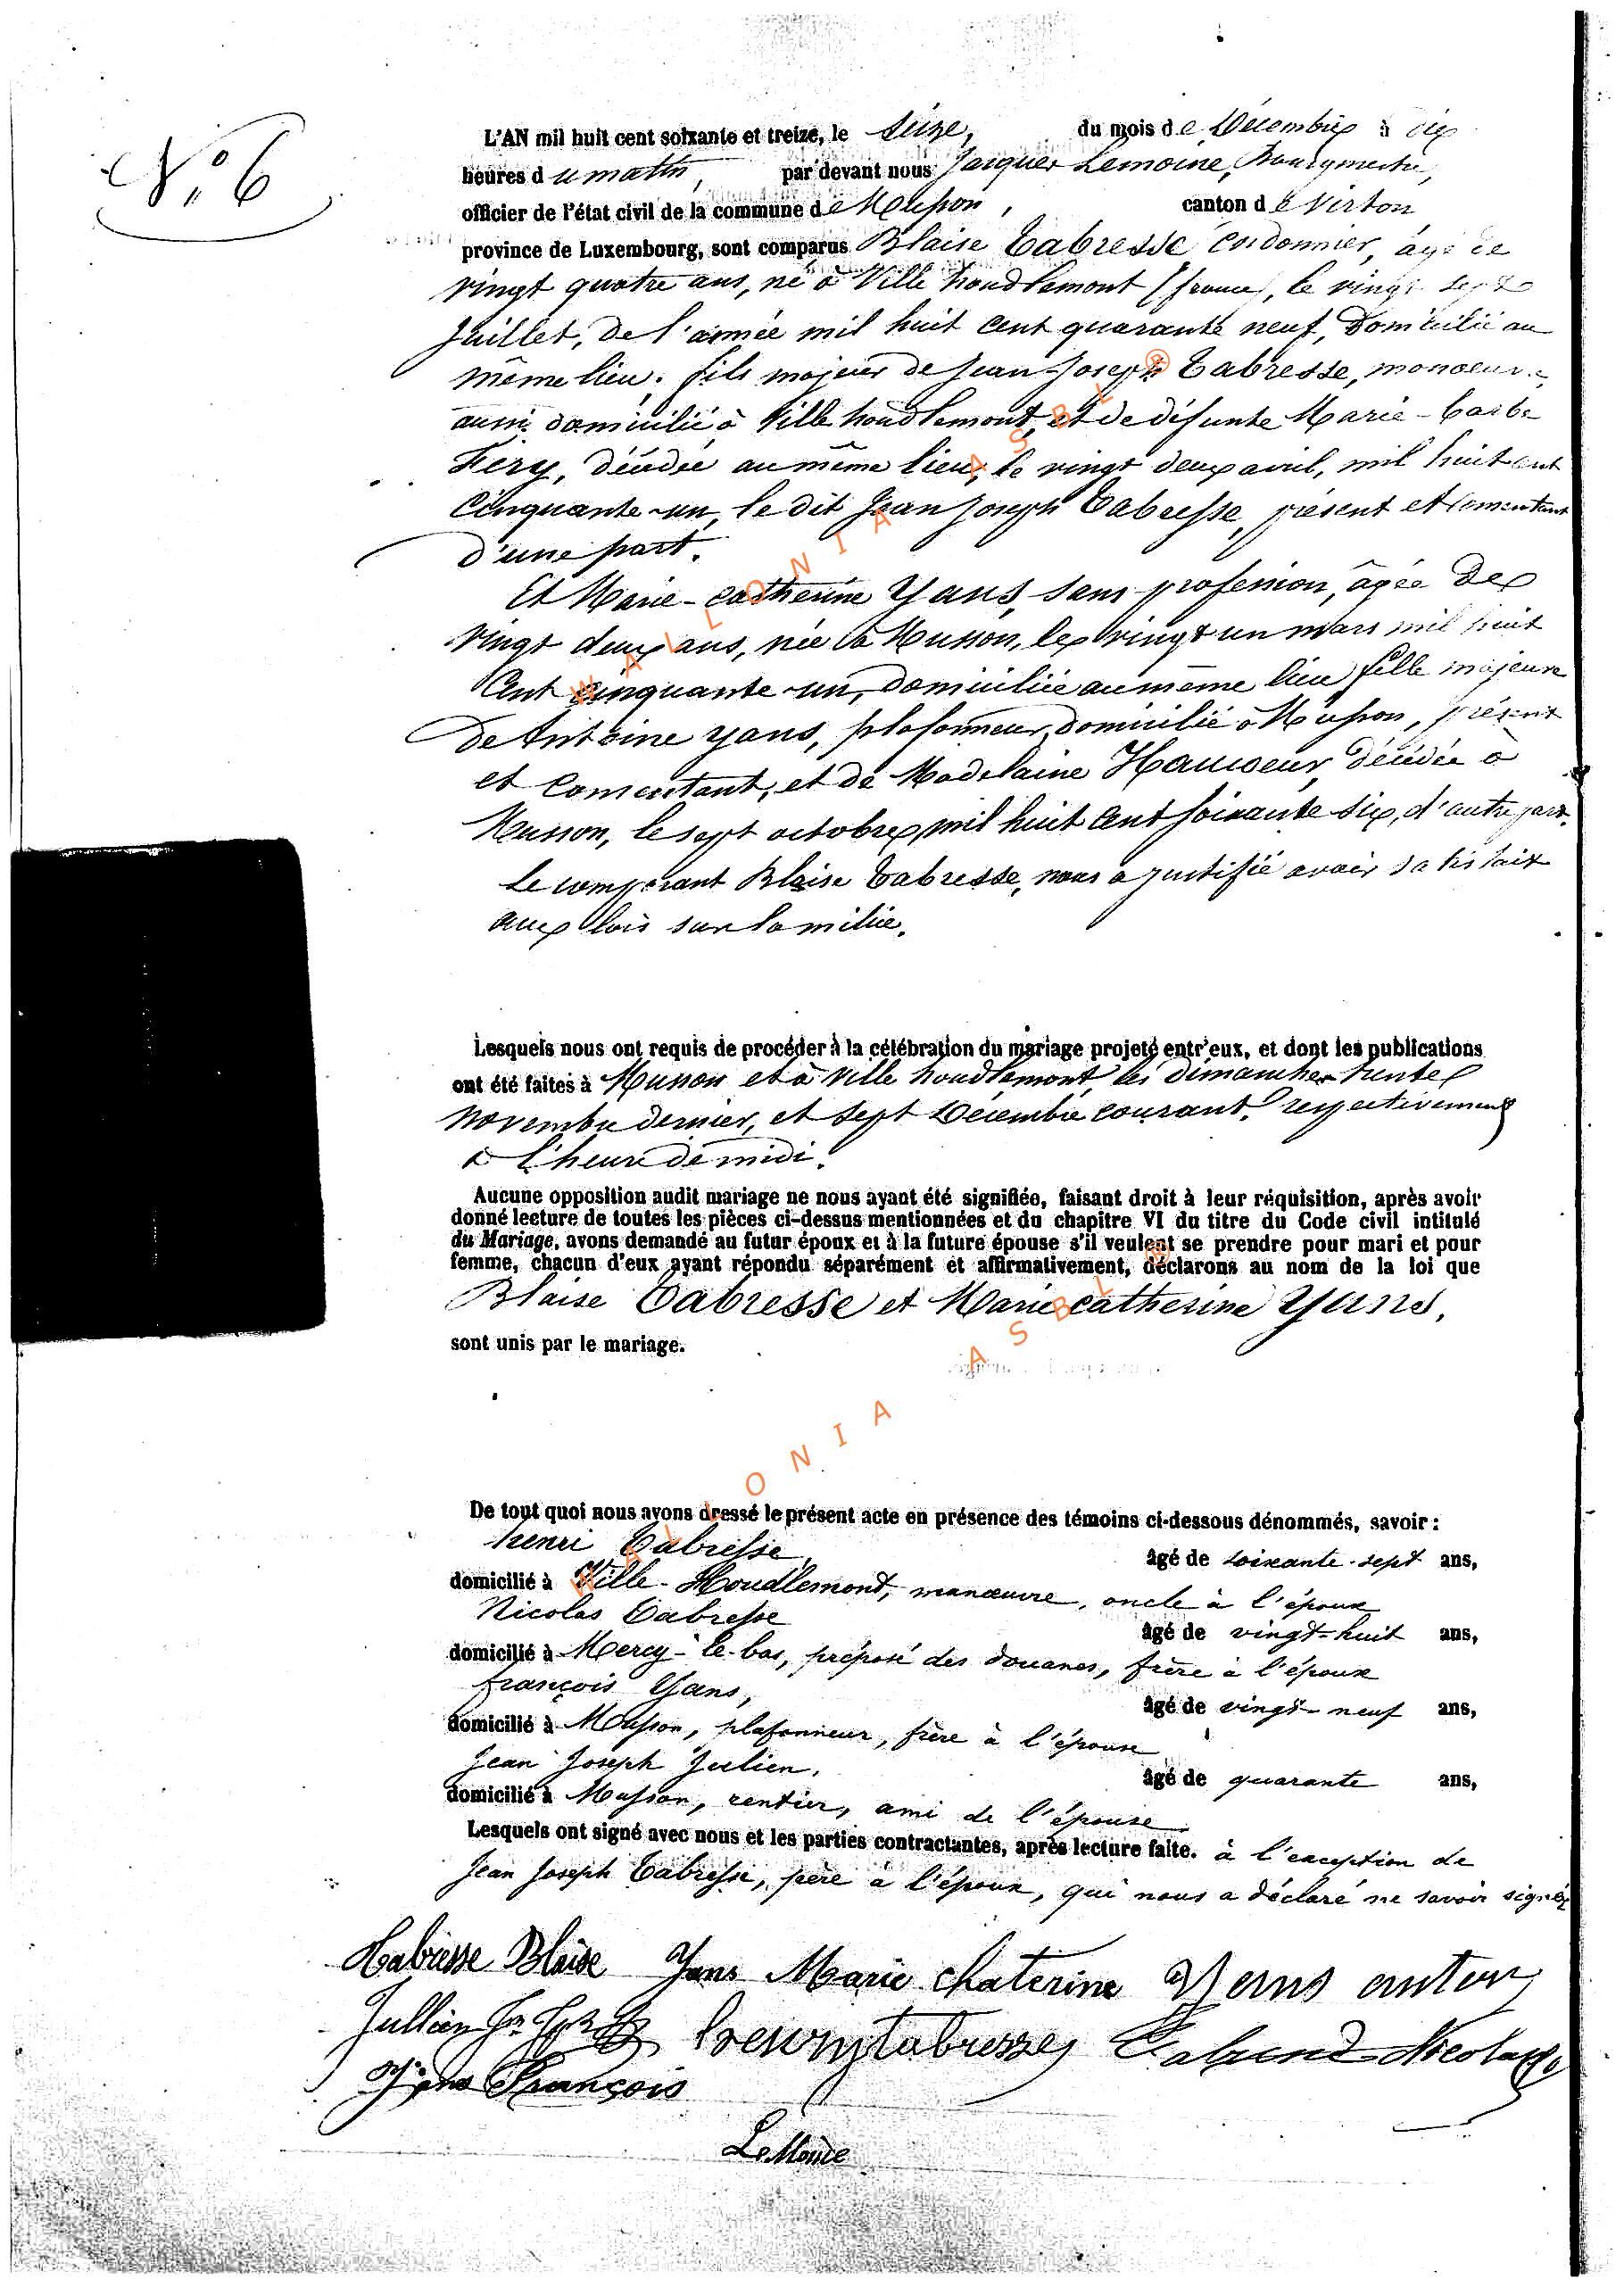 N.° 6
L'AN mil huit cent soixante et treize, le Seize, du mois de Décembre à dix
heures du matin, par devant nous Jacques Lemoine, Bourgmestre,
officier de l'état civil de la commune de Musson, canton de Virton
province de Luxembourg, sont comparus Blaise Tabresse cordonnier, âgé de
vingt quatre ans, né à Ville houdlemont (france), le vingt sept
Juillet, de l'année mil huit cent quarante neuf, Domicilié au
même lieu, fils majeur de Jean-Joseph Tabresse, manoeuvre,
aussi domicilié à Ville houdlemont, et de défunte Marie-Barbe
Féry, décédée au même lieu, le vingt deux avril, mil huit cent
cinquante-un, le dit Jean Joseph Tabresse, présent et consentant
d'une part.
Et Marie-catherine Yans, sans profession, âgée de
vingt deux ans, née à Musson, le vingt un mars mil huit
Cent cinquante-un, domiciliée au même lieu fille majeure
de Antoine yans, plafonneur, domicilié à Musson, présent
et consentant, et de Madelaine Hauweur, décédée à
Musson, le sept octobre mil huit Cent soixante six, d'autre part.
Le comparant Blaise Tabresse, nous a justifié avoir satisfait
aux lois sur la milice.
Lesquels nous ont requis de procéder à la célébration du mariage projeté entr'eux, et dont les publications
ont été faites à Musson et à Ville houdlemont les dimanches trente
novembre dernier, et sept Décembre courant, respectivement
à l'heure de midi.
Aucune opposition audit mariage ne nous ayant été signifiée, faisant droit à leur réquisition, après avoir
donné lecture de toutes les pièces ci-dessus mentionnées et du chapitre VI du titre du Code civil intitulé
du Mariage, avons demandé au futur époux et à la future épouse s'il veulent se prendre pour mari et pour
femme, chacun d'eux ayant répondu séparément et affirmativement, déclarons au nom de la loi que
Blaise Tabresse et Marie catherine Yans,
sont unis par le mariage.
De tout quoi nous avons dressé le présent acte en présence des témoins ci-dessous dénommés, savoir :
henri Tabresse, âgé de soixante-sept ans,
domicilié à Ville-Houdlemont, manœuvre, oncle à l'époux
Nicolas Tabresse âgé de vingt-huit ans,
domicilié à Mercy-le-bas, préposé des douanes, frère à l'époux
françois Yans, âgé de vingt-neuf ans,
domicilié à Musson, plafonneur, frère à l'épouse
Jean Joseph Julien, âgé de quarante ans,
domicilié à Musson, rentier, ami de l'épouse
Lesquels ont signé avec nous et les parties contractantes, après lecture faite. à l'exception de
Jean Joseph Tabresse, père à l'époux, qui nous a déclaré ne savoir signer
Tabresse Blaise Yans Marie Chaterine Yans anton
Jullien Jn Tabresse Nicolas
Yans François
Lemoine
WALLONIA ASBL ®
WALLONIA ASBL ®